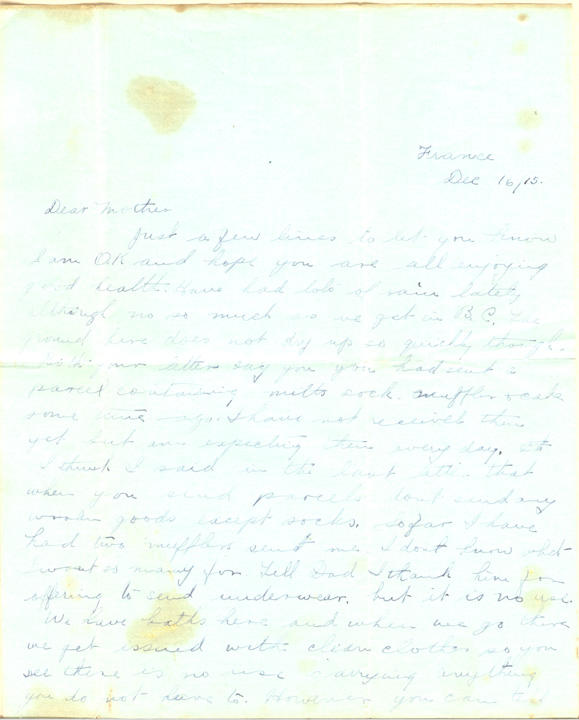 France
Dec 16/15.
Dear Mother
Just a few lines to let you know
I am OK and hope you are all enjoying
good health. Have had lots of rain lately
although no so much as we get in B.C. The
ground here does not dry up so quickly though.
your letter say you you had sent a
parcel containing mitts sock. muffler & cake
some time ago. I have not received them
yet but am expecting them every day.
I think I said in the last that
when you send parcels dont send any
woolen goods except socks. So far I have
had two mufflers sent me I dont know what
I want so many for. Tell Dad I thank him for
offering to send underwear. but it is no use.
We have baths here and when we go there
we get issued with clean clothes so you
see there is no use carrying anything
you do not have to. However you can